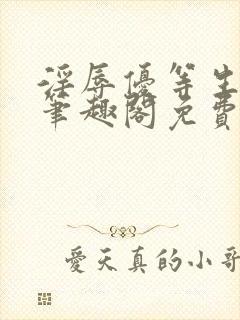 淫辱優等生
筆趣閣免費
愛天真的小哥